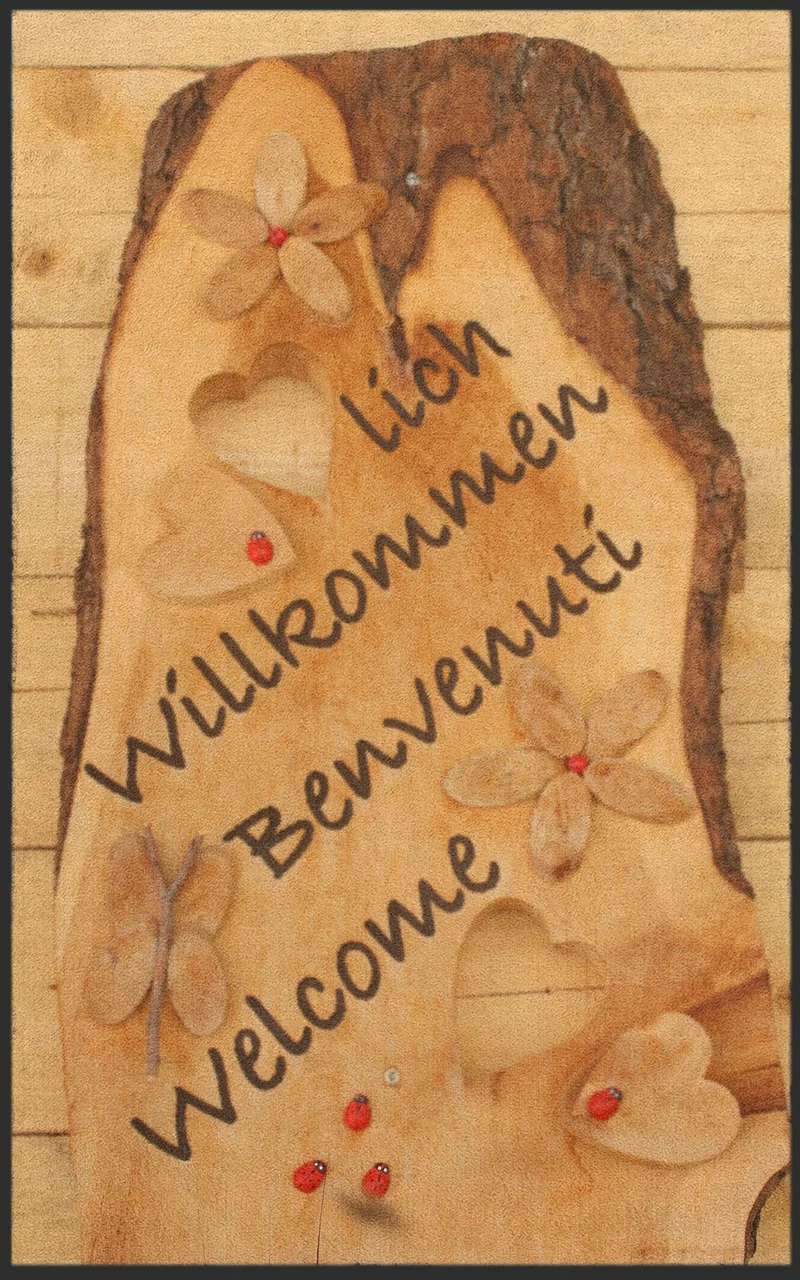 lich
Willkommen
Benvenuti
Welcome